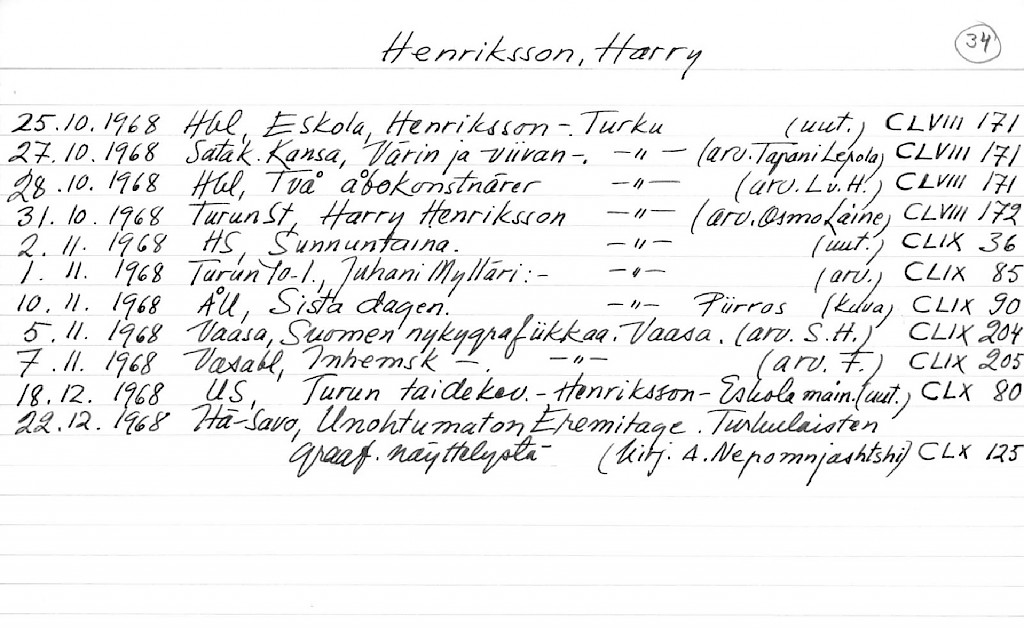 Henriksson, Harry
34
25.10.1968 Hbl, Eskola, Henriksson -. Turku (uut.) CLVIII 171
27.10.1968 Satak. Kansa, Värin ja viivan -. -"- (arv. Tapani Lepola) CLVIII 171
28.10.1968 Hbl, Två åbokonstnärer -"- (arv. L.v.H.) CLVIII 171
31.10.1968 TurunSt, Harry Henriksson -"- (arv. Osmo Laine) CLVIII 172
2.11.1968 HS, Sunnuntaina. -"- (uut.) CLIX 36
1.11.1968 Turun Yo-l., Juhani Mylläri: - -"- (arv.) CLIX 85
10.11.1968 ÅU, Sista dagen. -"- Piirros (kuva) CLIX 90
5.11.1968 Vaasa, Suomen nykygrafiikkaa. Vaasa. (arv. S.H.) CLIX 204
7.11.1968 Vasabl, Inhemsk -. -"- (arv. F.) CLIX 205
18.12.1968 US, Turun taidekov. - Henriksson - Eskola main. (uut.) CLX 80
22.12.1968 Itä-Savo, Unohtumaton Eremitage. Turkulaisten
graaf. näyttelystä (kirj. A. Nepomnjashtshij) CLX 125